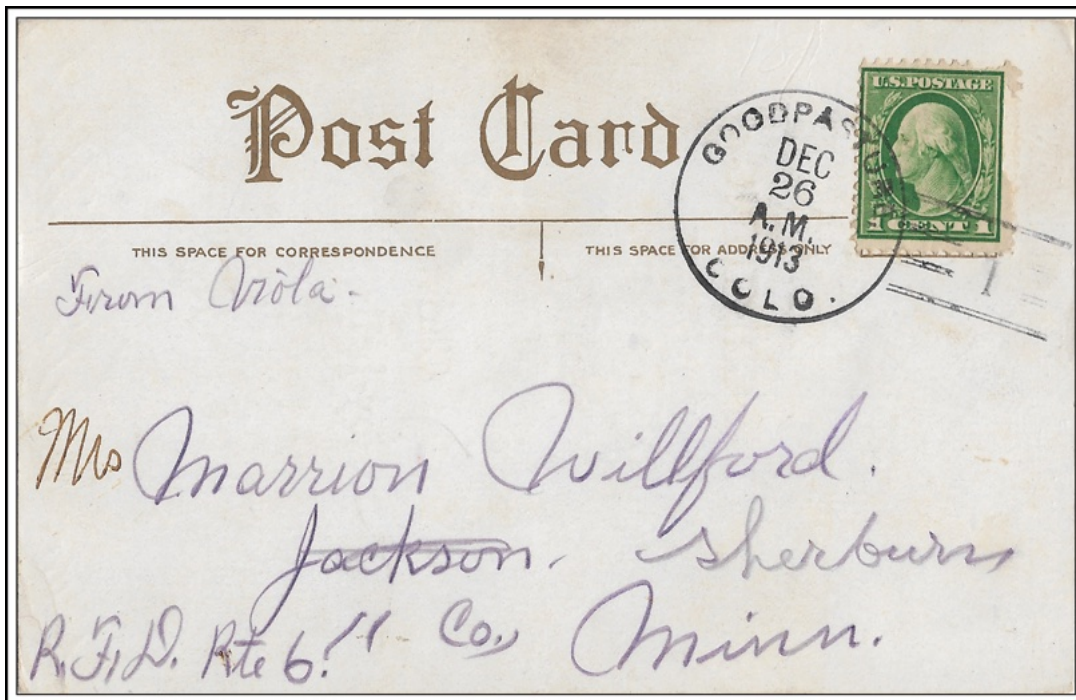 Post Card
U.S. POSTAGE
1 CENT 1
GOODPASTURE
DEC
26
A.M.
1913
COLO.
THIS SPACE FOR CORRESPONDENCE
THIS SPACE FOR ADDRESS ONLY
From Viola.
Mrs Marrion Willford.
Jackson. Sherburn
R.F.D. Rte 6. " Co., Minn.